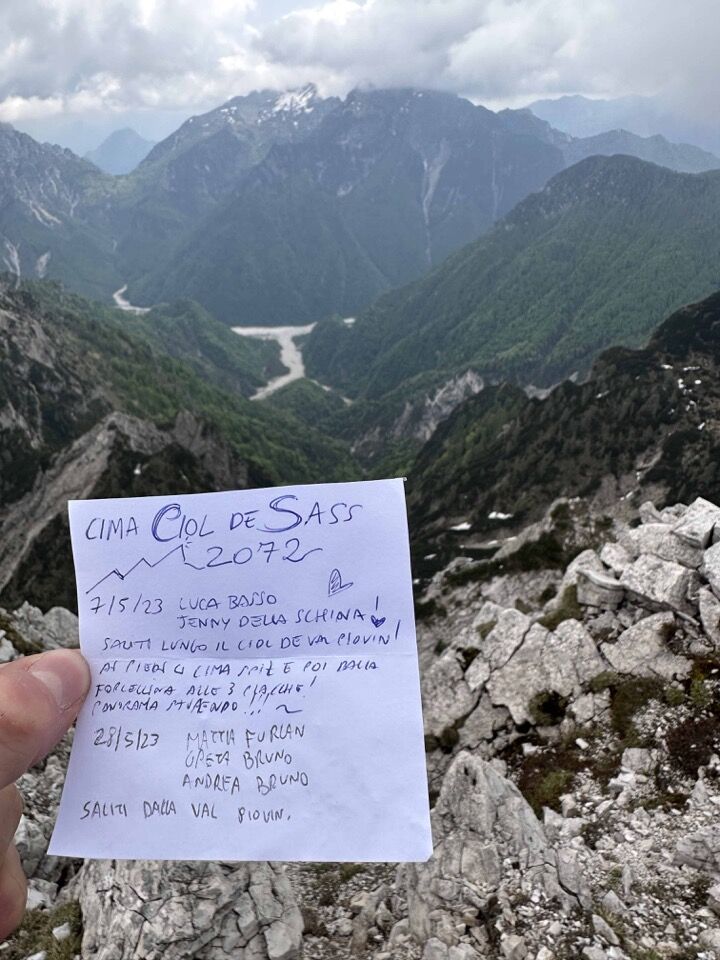 CIMA CIOL DE SASS
2072
7/5/23 LUCA BASSO
JENNY DELLA SCHIAVA!
SALITI LUNGO IL CIOL DE VAL PIOVIN!
AI PIEDI CIMA SPIZ E POI DALLA
FORCELLINA ALLE 3 PIACCHE!
PANORAMA STUPENDO!!!
28/5/23 MATTIA FURLAN
GRETA BRUNO
ANDREA BRUNO
SALITI DALLA VAL PIOVIN.